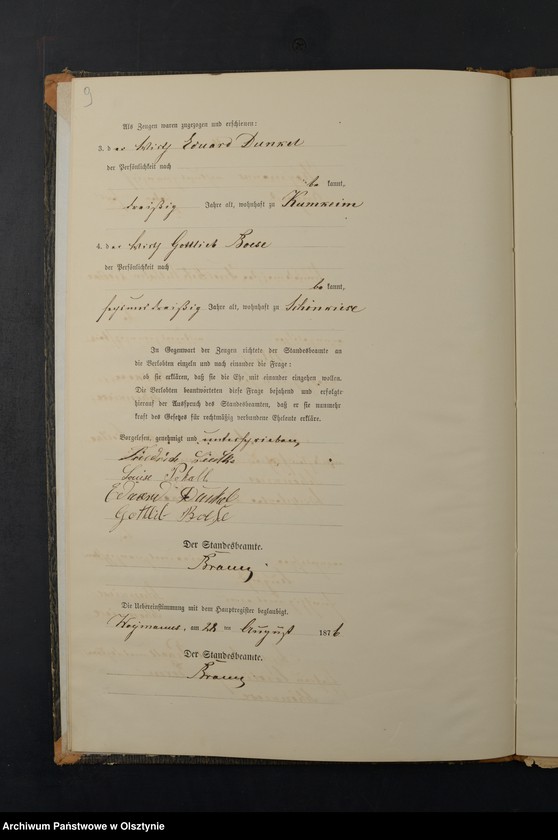 9
Als Zeugen waren zugezogen und erschienen:
3. der Wirth Eduard Dunkel
der Persönlichkeit nach
be kannt,
dreißig Jahre alt, wohnhaft zu Kumkeim
4. der Wirth Gottlieb Boese
der Persönlichkeit nach
be kannt,
sechsunddreißig Jahre alt, wohnhaft zu Schönwiese
In Gegenwart der Zeugen richtete der Standesbeamte an
die Verlobten einzeln und nach einander die Frage:
ob sie erklären, daß sie die Ehe mit einander eingehen wollen.
Die Verlobten beantworteten diese Frage bejahend und erfolgte
hierauf der Ausspruch des Standesbeamten, daß er sie nunmehr
kraft des Gesetzes für rechtmäßig verbundene Eheleute erkläre.
Vorgelesen, genehmigt und unterschrieben
Louise
Eduard Dunkel
Gottlieb Boese
Der Standesbeamte.
Braun
Die Uebereinstimmung mit dem Hauptregister beglaubigt.
am 22 ten August 1876
Der Standesbeamte.
Braun
Archiwum Państwowe w Olsztynie